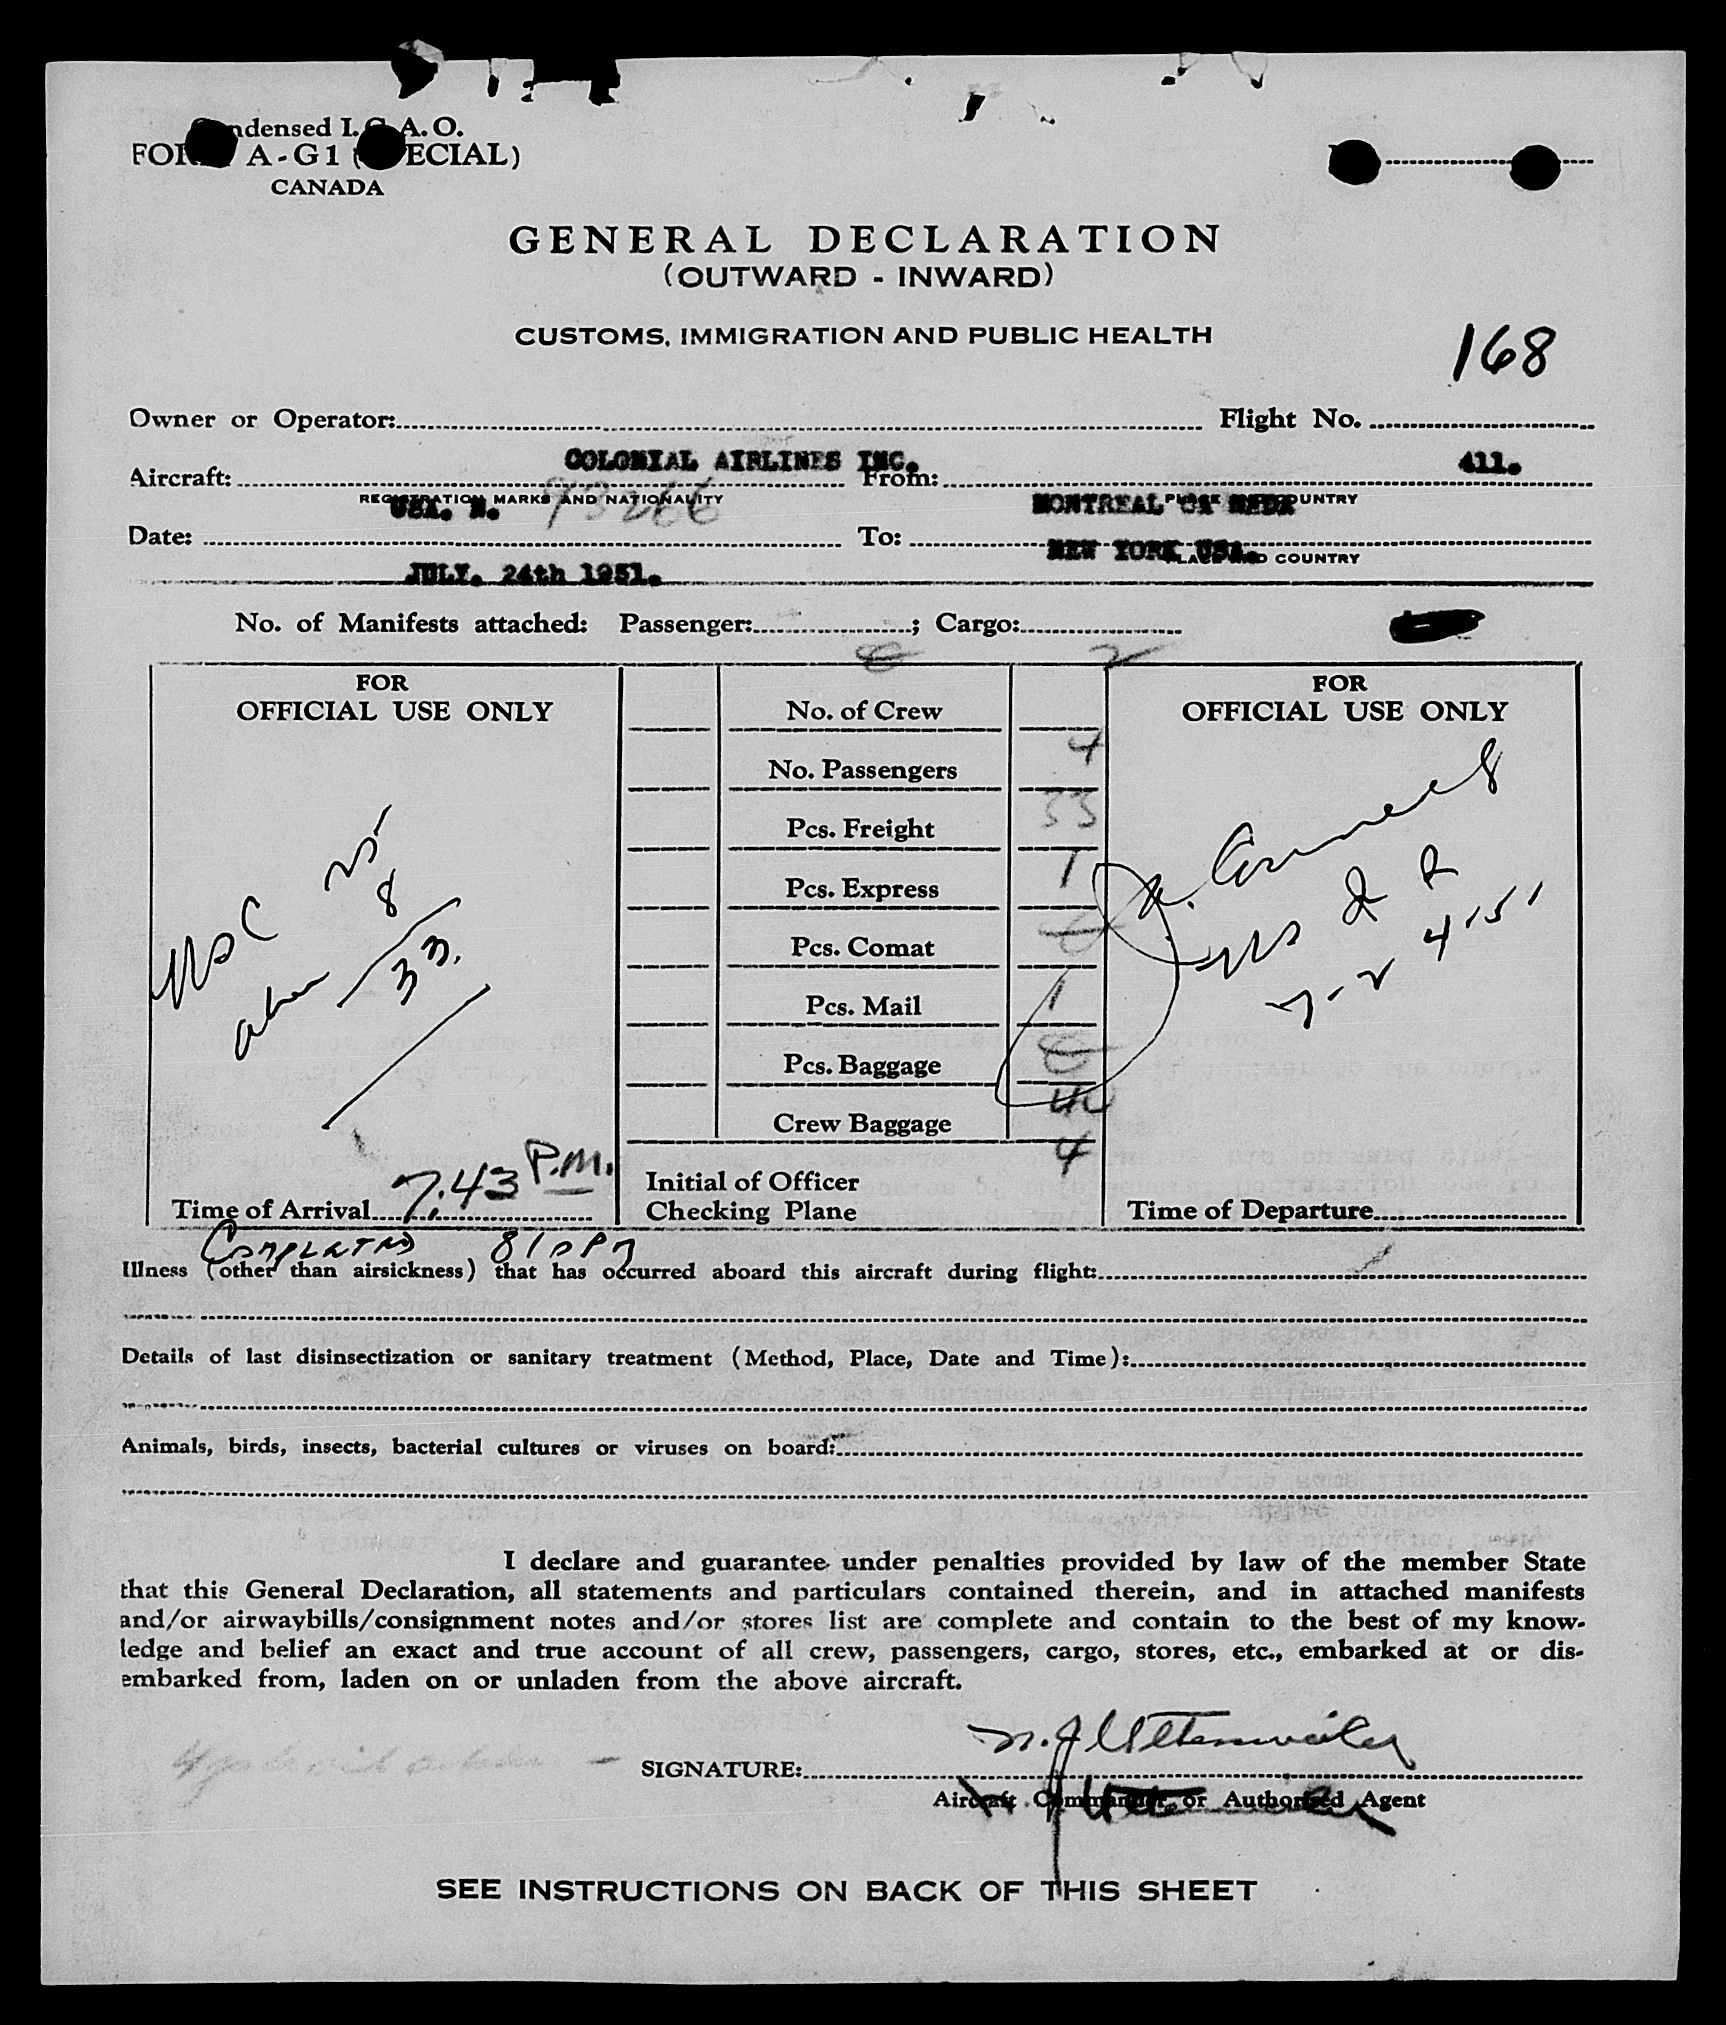 Condensed I.C.A.O.
FORM A-G1 (SPECIAL)
CANADA
GENERAL DECLARATION
(OUTWARD - INWARD)
CUSTOMS, IMMIGRATION AND PUBLIC HEALTH
168
Owner or Operator: Flight No.
COLONIAL AIRLINES INC. 411.
Aircraft: From:
REGISTRATION MARKS AND NATIONALITY PLACE AND COUNTRY
USA. N. 93266 MONTREAL
Date: To:
NEW YORK USA.
PLACE AND COUNTRY
JULY. 24th 1951.
No. of Manifests attached: Passenger: ; Cargo:
2
FOR
OFFICIAL USE ONLY
No. of Crew
4
No. Passengers
33
Pcs. Freight
1
Pcs. Express
Pcs. Comat
1
Pcs. Mail
Pcs. Baggage
44
Crew Baggage
4
Initial of Officer
Checking Plane
USC 25
alien 8
33.
Time of Arrival 7.43 P.M.
FOR
OFFICIAL USE ONLY
7-24-51
Time of Departure
COMPLETED 810 PM
Illness (other than airsickness) that has occurred aboard this aircraft during flight:
Details of last disinsectization or sanitary treatment (Method, Place, Date and Time):
Animals, birds, insects, bacterial cultures or viruses on board:
I declare and guarantee under penalties provided by law of the member State
that this General Declaration, all statements and particulars contained therein, and in attached manifests
and/or airwaybills/consignment notes and/or stores list are complete and contain to the best of my know-
ledge and belief an exact and true account of all crew, passengers, cargo, stores, etc., embarked at or dis-
embarked from, laden on or unladen from the above aircraft.
SIGNATURE:
Aircraft Commander or Authorised Agent
SEE INSTRUCTIONS ON BACK OF THIS SHEET